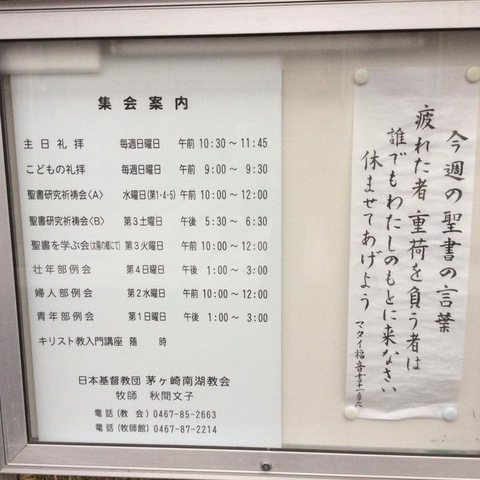 集会案内
主日礼拝 毎週日曜日 午前 10:30～11:45
こどもの礼拝 毎週日曜日 午前 9:00～9:30
聖書研究祈祷会〈A〉 水曜日(第1·4·5) 午前 10:00～12:00
聖書研究祈祷会〈B〉 第3土曜日 午後 5:30～6:30
聖書を学ぶ会(太陽の郷にて) 第3火曜日 午前 10:00～12:00
壮年部例会 第4日曜日 午後 1:00～3:00
婦人部例会 第2水曜日 午前 10:00～12:00
青年部例会 第1日曜日 午後 1:00～3:00
キリスト教入門講座 随時
日本基督教団 茅ヶ崎南湖教会
牧師 秋間文子
電話(教会) 0467-85-2663
電話(牧師館) 0467-87-2214
今週の聖書の言葉
疲れた者 重荷を負う者は
誰でもわたしのもとに来なさい
休ませてあげよう
マタイ福音書十一章